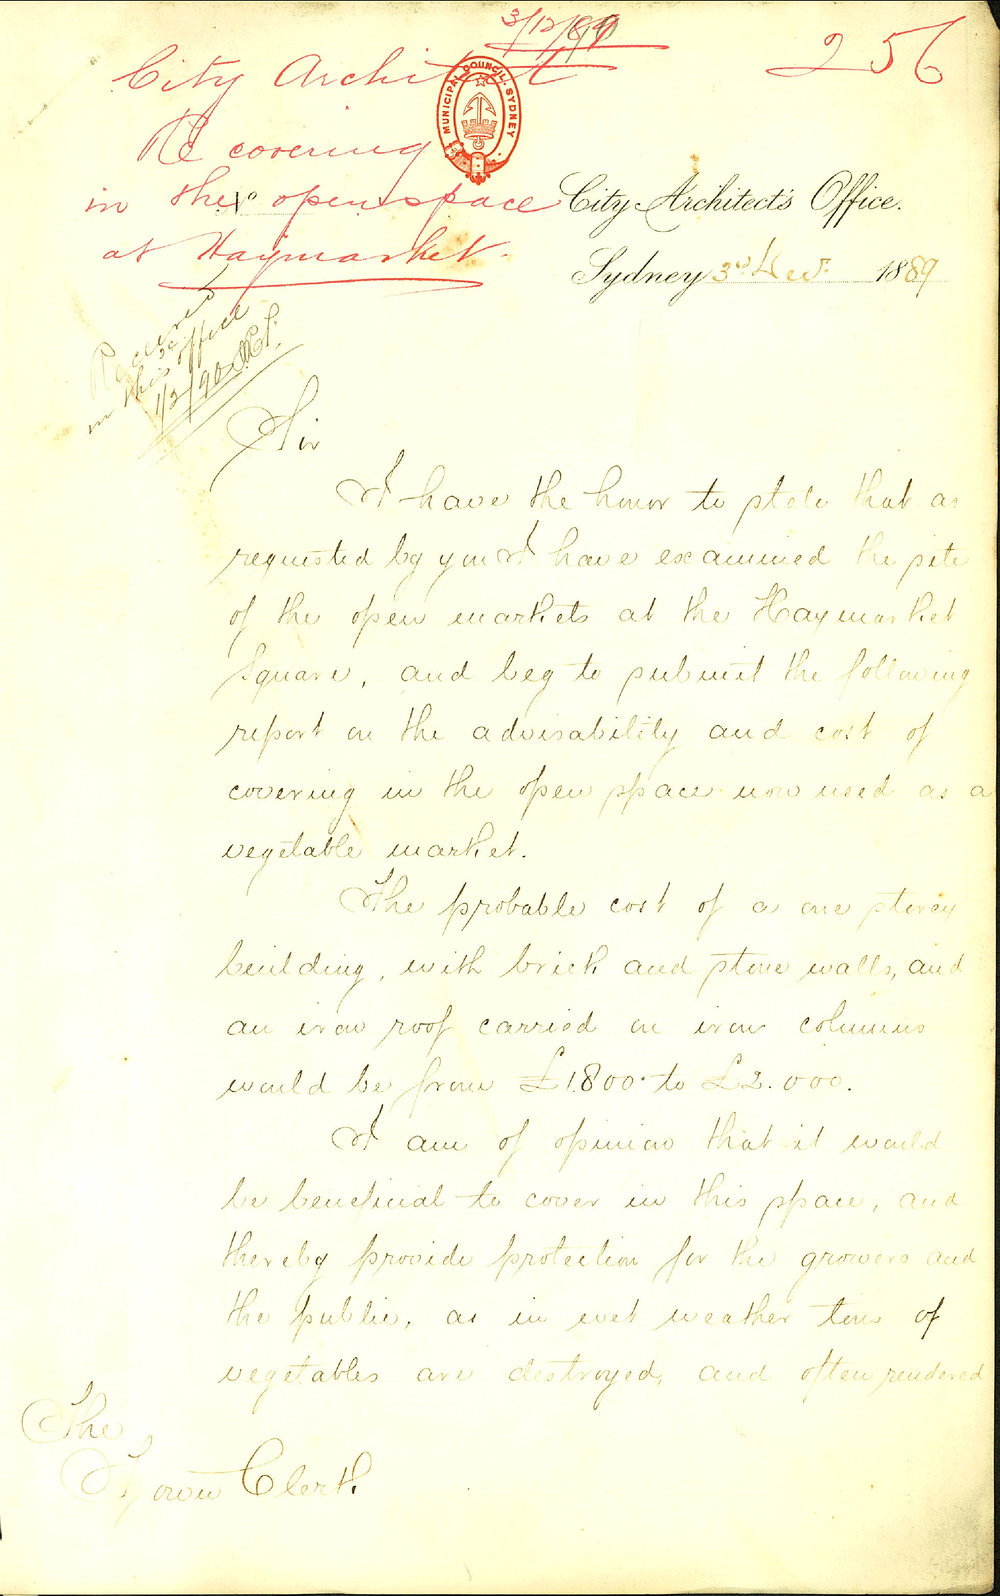 3/12/89
256
City Architect
Re covering
in the open space
at Haymarket.
MUNICIPAL COUNCIL. SYDNEY
No
City Architect's Office.
Sydney 3rd Decr. 1889
Received
in this office
1/2/90
Sir
I have the honor to state that as
requested by you I have examined the site
of the open markets at the Haymarket
Square, and beg to submit the following
report on the advisability and cost of
covering in the open space now used as a
vegetable market.
The probable cost of a one storey
building, with brick and stone walls, and
an iron roof carried on iron columns
would be from £1800 to £2.000.
I am of opinion that it would
be beneficial to cover in this space, and
thereby provide protection for the growers and
the public, as in wet weather tons of
vegetables are destroyed, and often rendered
The
Town Clerk